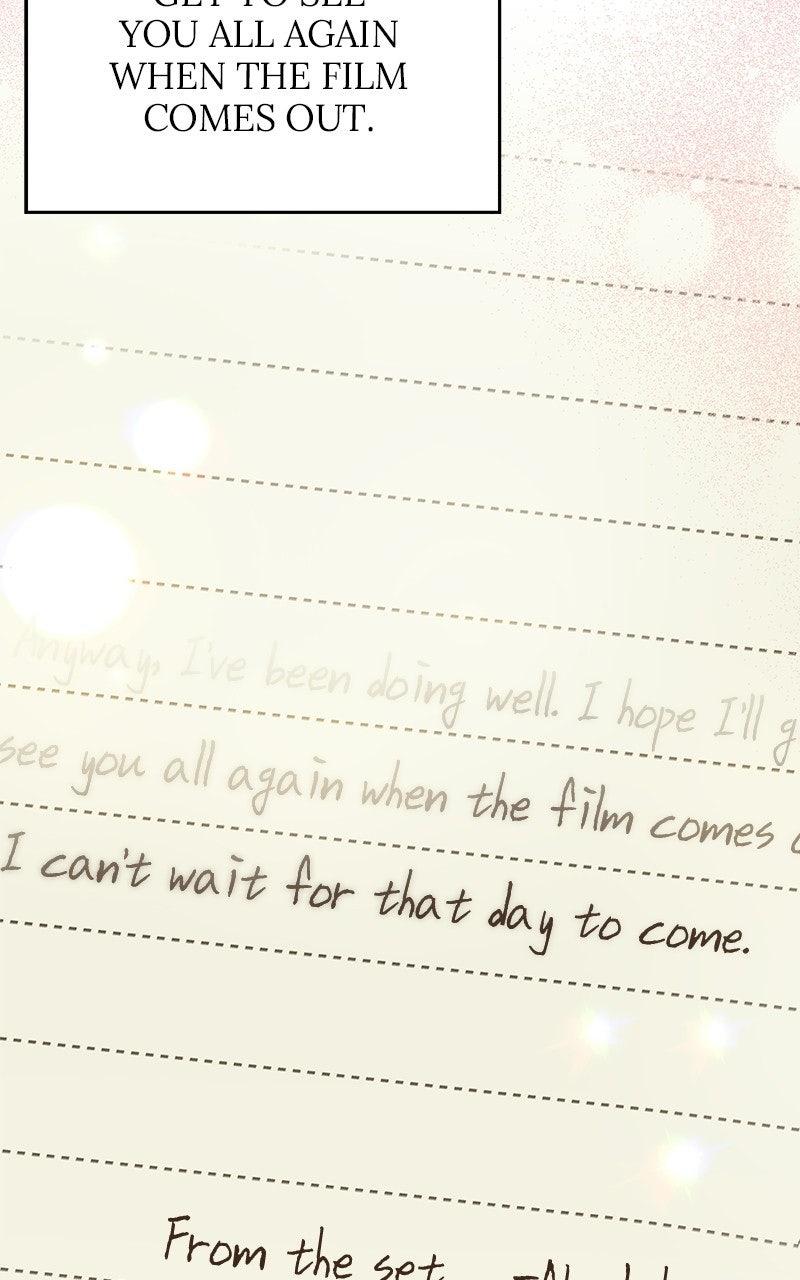 GET TO SEE
YOU ALL AGAIN
WHEN THE FILM
COMES OUT.
Anyway, I've been doing well. I hope I'll g
see you all again when the film comes
I can't wait for that day to come.
From the set